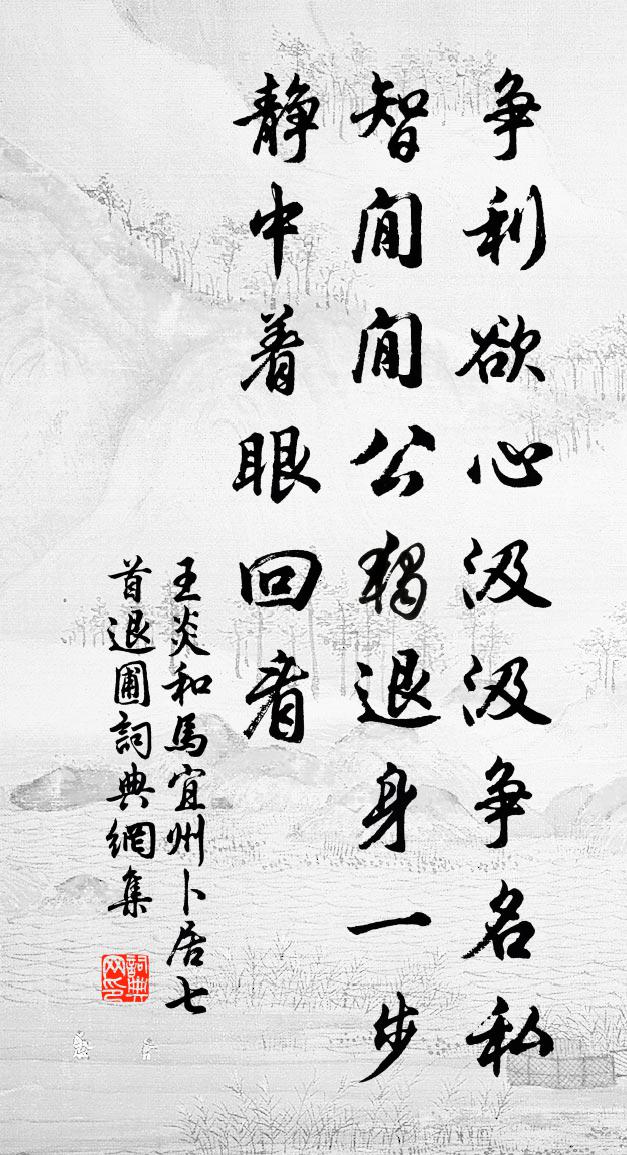 争利欲心汲汲争名私
智闲闲公独退身一步
静中着眼回看
王炎和馬宜州卜居七
首退圃詞典網集
詞典网印